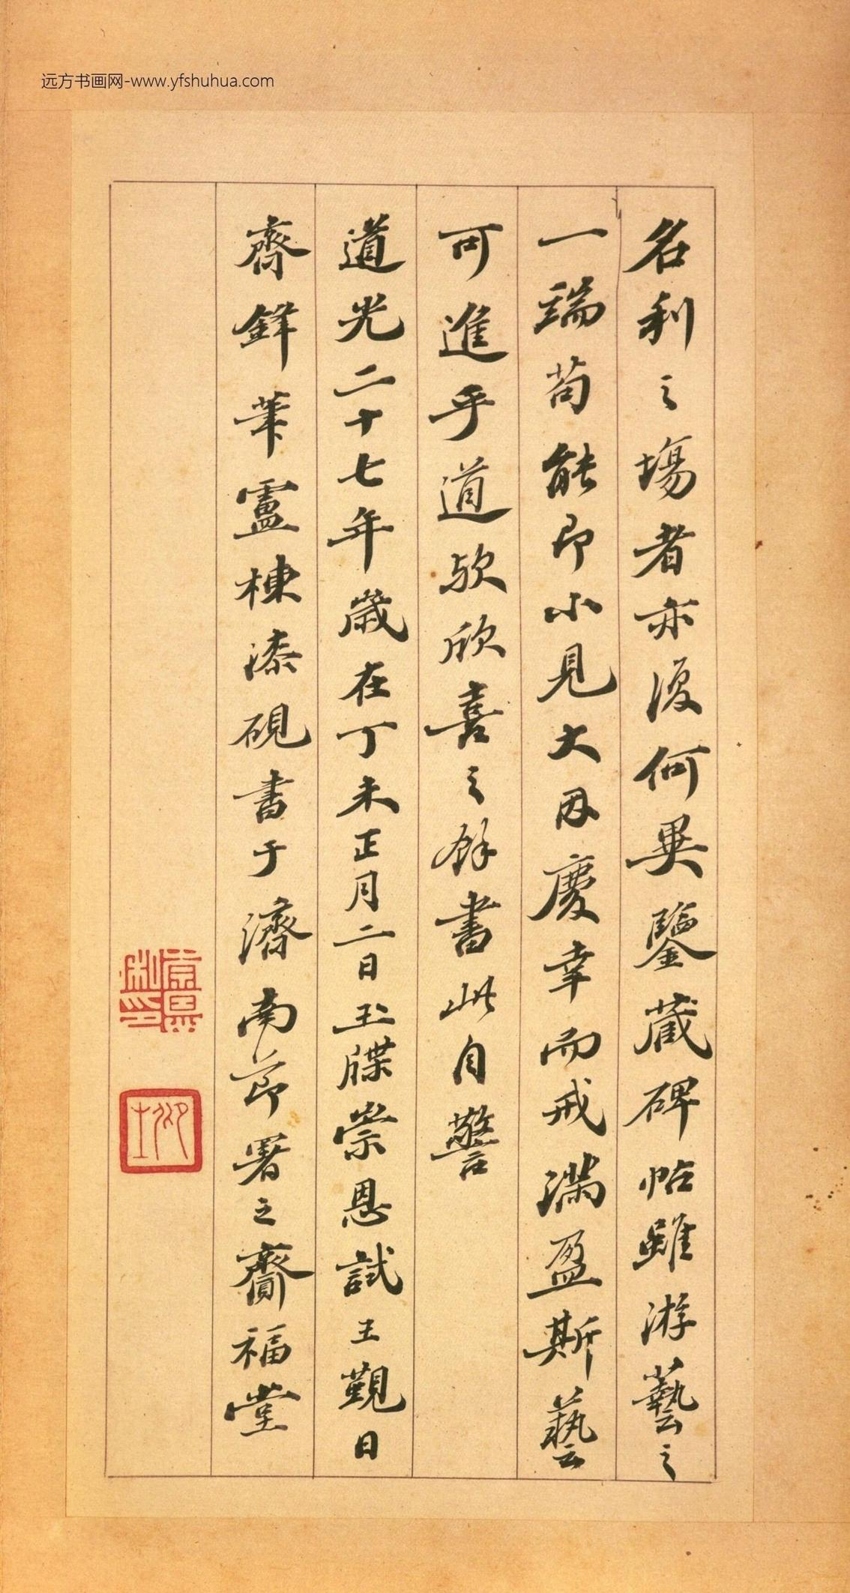 远方书画网-www.yfshuhua.com
名利之場者亦復何異鑒藏碑帖雖游藝之
一端苟能即小見大因慶幸而戒滿盈斯藝
可進乎道欤欣喜之餘書此自警
道光二十七年歲在丁未正月二日玉牒崇恩試王觀日
齋鋒筆盧棟漆硯書于濟南節署之齋福堂